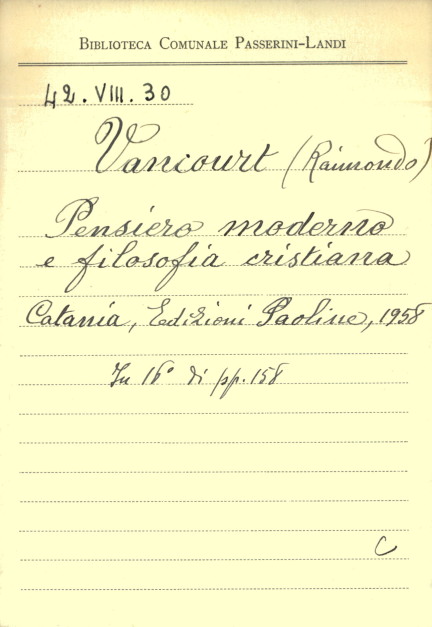 BIBLIOTECA COMUNALE PASSERINI-LANDI
42. VIII. 30
Vancourt (Raimondo)
Pensiero moderno
e filosofia cristiana
Catania, Edizioni Paoline, 1958
In 16° di pp. 158
C